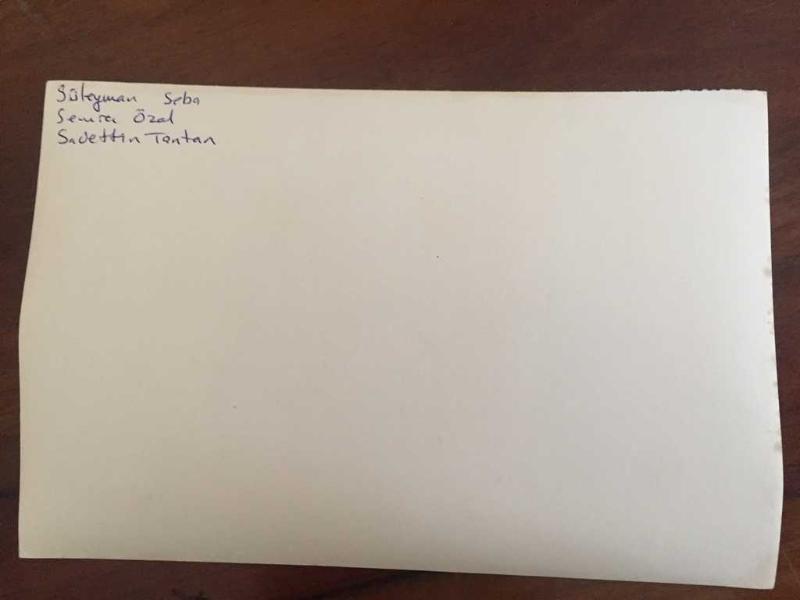 Süleyman Seba
Semra Özal
Sadettin Tantan